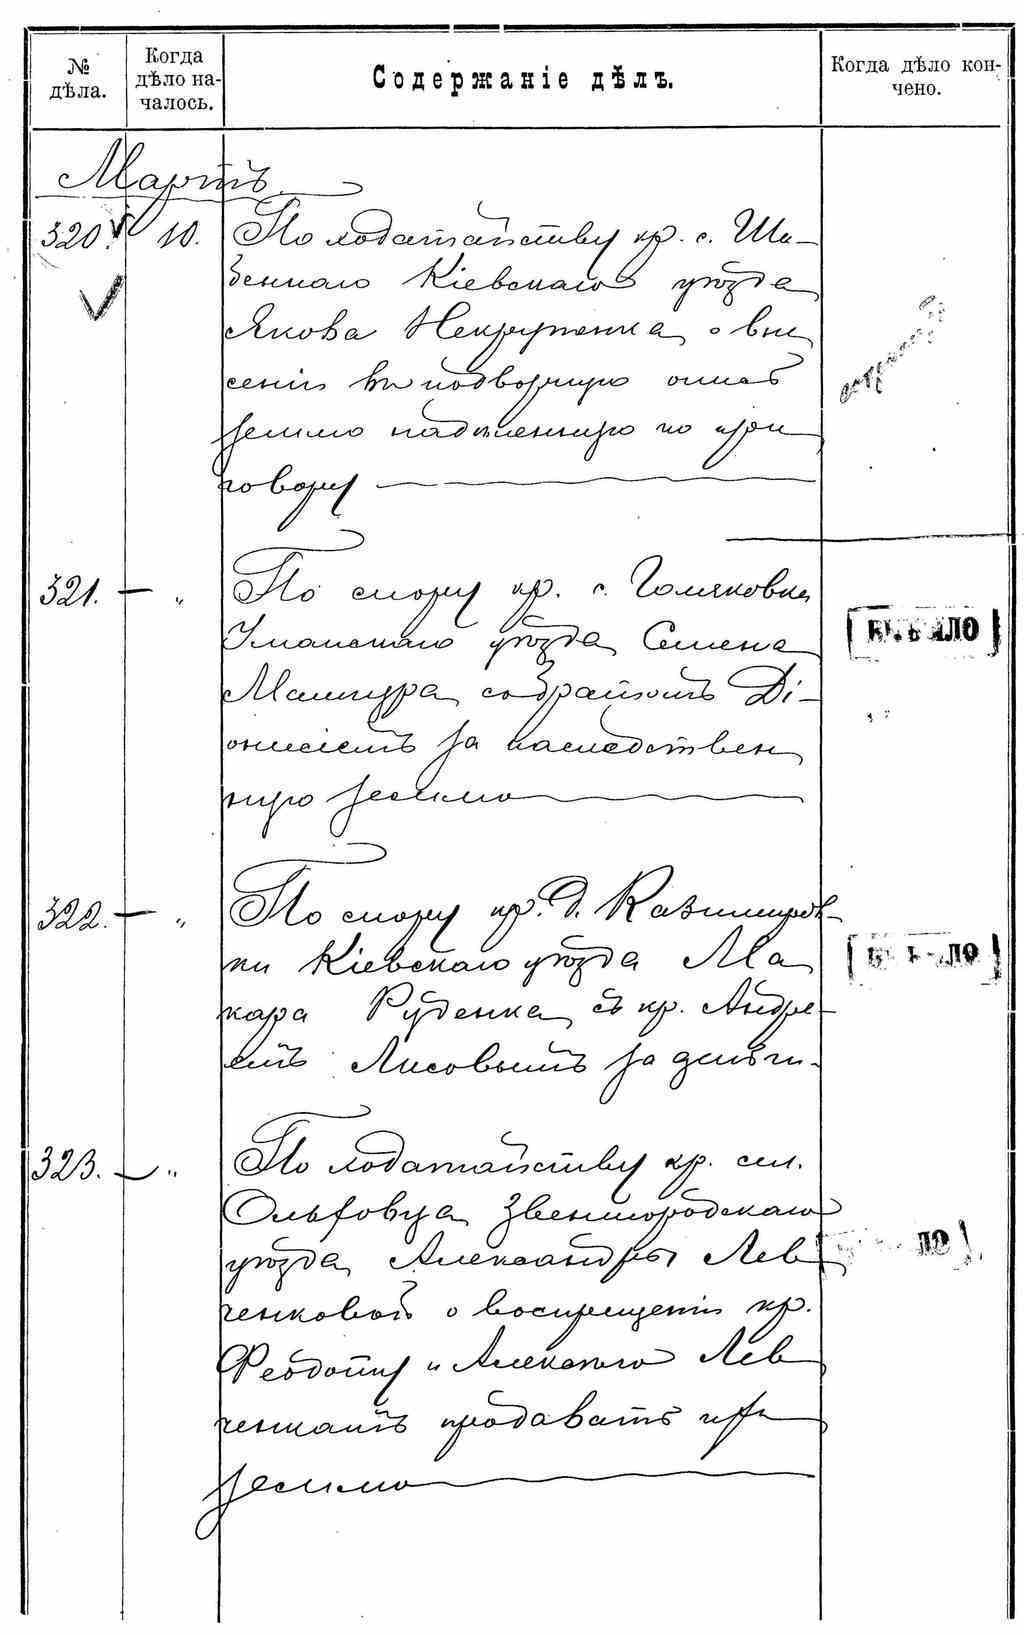 № дѣла.
Когда дѣло началось.
Содержаніе дѣлъ.
Когда дѣло кончено.
Мартъ
320. 10. По ходатайству кр. с. Ша-
беннаго Кіевскаго уѣзда
Якова о вне
сеніи въ подворную опись
землю надѣленную по при
говору
321. — „ По спору кр. с. Голяковки
Уманскаго уѣзда Семена
Машира съ братомъ Ді-
онисіемъ за наслѣдствен
ную землю
322. — „ По спору кр. д. Казимиров-
ки Кіевскаго уѣзда Ма
кара Руденка съ кр. Андре-
емъ Лисовымъ за деньги.
323. — „ По ходатайству кр. сел.
Ольховца Звенигородскаго
уѣзда Александры Лев
ченковой о воспрещеніи кр.
Феодоту и Алексѣю Лев
ченкамъ продавать
землю